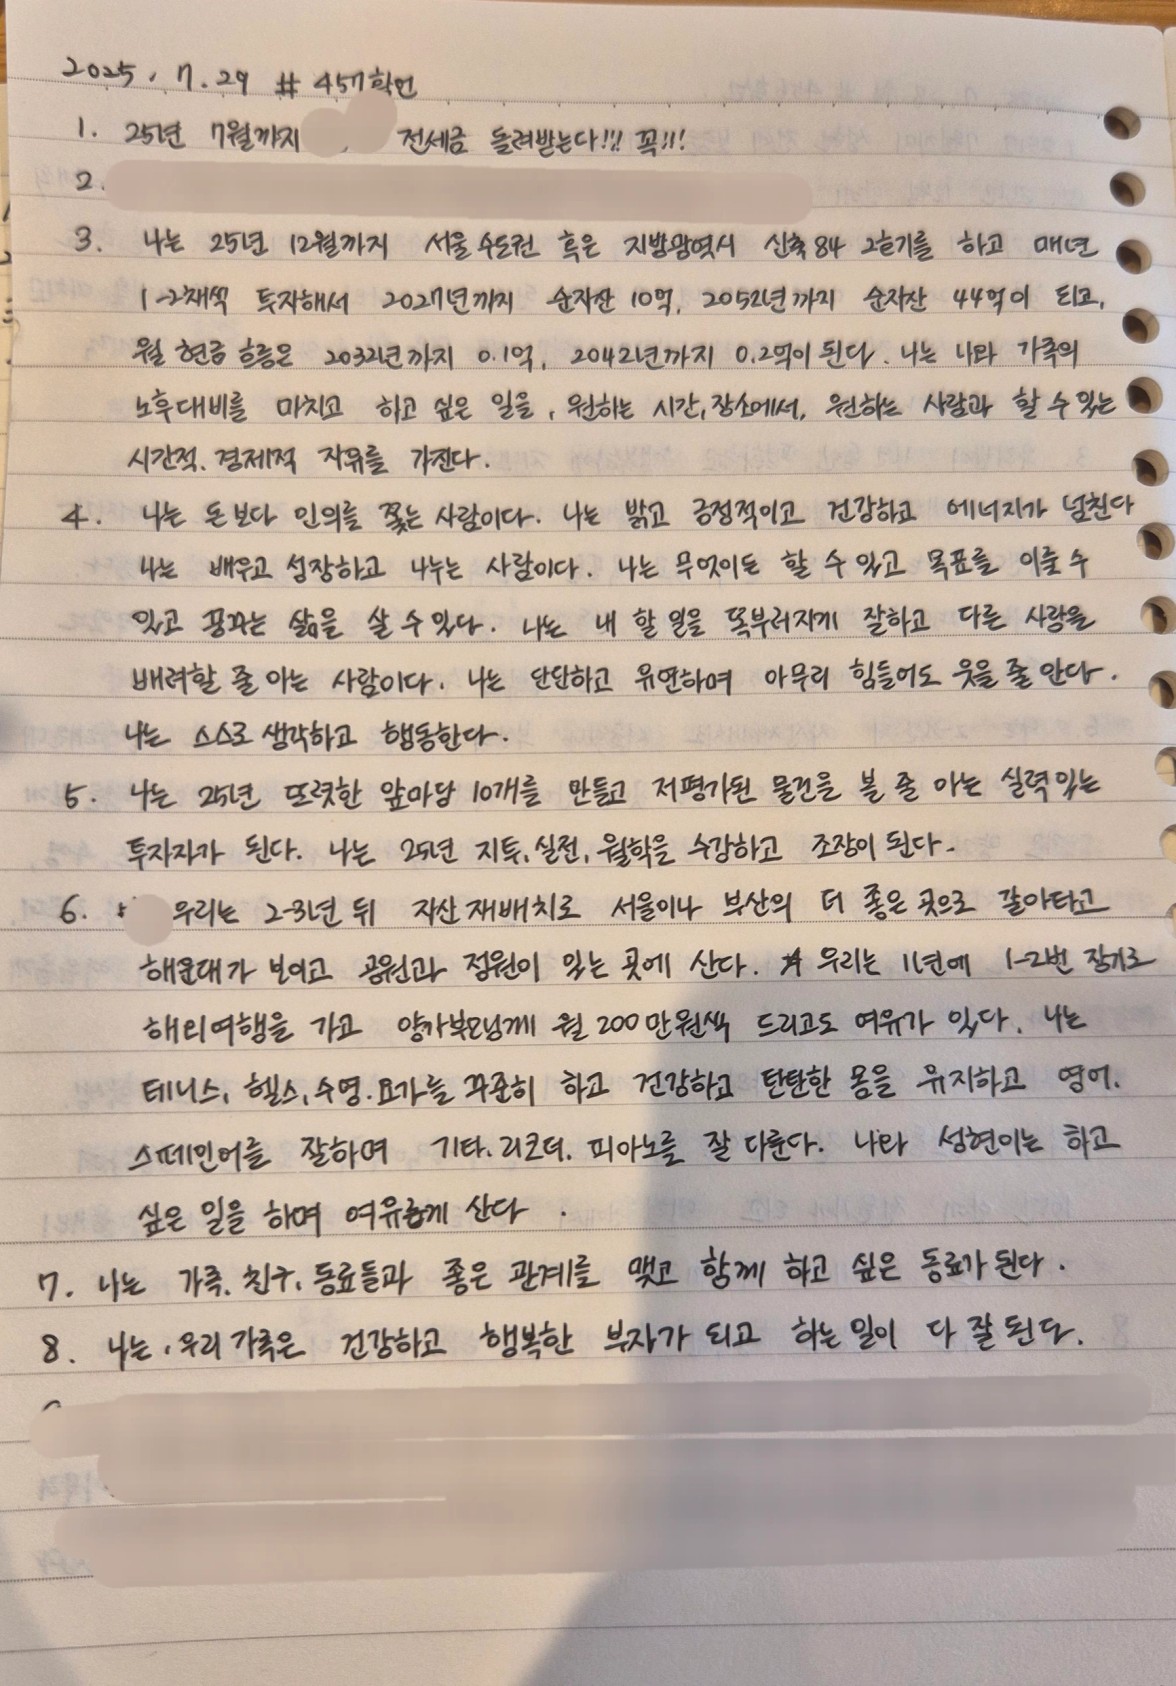 2025. 7. 29 # 457확언
1. 25년 7월까지 전세금 돌려받는다!!! 꼭!!!
2.
3. 나는 25년 12월까지 서울 수도권 혹은 지방광역시 신축84 2호기를 하고 매년
1-2채씩 투자해서 2027년까지 순자산 10억, 2052년까지 순자산 44억이 되고,
월 현금 흐름은 2032년까지 0.1억, 2042년까지 0.2억이 된다. 나는 나와 가족의
노후대비를 마치고 하고 싶은 일을, 원하는 시간, 장소에서, 원하는 사람과 할 수 있는
시간적, 경제적 자유를 가진다.
4. 나는 돈보다 인의를 쫓는 사람이다. 나는 밝고 긍정적이고 건강하고 에너지가 넘친다
나는 배우고 성장하고 나누는 사람이다. 나는 무엇이든 할 수 있고 목표를 이룰 수
있고 꿈꾸는 삶을 살 수 있다. 나는 내 할 일을 똑부러지게 잘하고 다른 사람을
배려할 줄 아는 사람이다. 나는 단단하고 유연하며 아무리 힘들어도 웃을 줄 안다.
나는 스스로 생각하고 행동한다.
5. 나는 25년 또렷한 앞마당 10개를 만들고 저평가된 물건을 볼 줄 아는 실력있는
투자자가 된다. 나는 25년 지투, 실전, 월학을 수강하고 조장이 된다.
6. 우리는 2-3년 뒤 자산 재배치로 서울이나 부산의 더 좋은 곳으로 갈아타고
해운대가 보이고 공원과 정원이 있는 곳에 산다. 우리는 1년에 1-2번 장기로
해외여행을 가고 양가부모님께 월 200만원씩 드리고도 여유가 있다. 나는
테니스, 헬스, 수영, 요가를 꾸준히 하고 건강하고 탄탄한 몸을 유지하고 영어,
스페인어를 잘하며 기타, 리코더, 피아노를 잘 다룬다. 나와 성현이는 하고
싶은 일을 하며 여유롭게 산다.
7. 나는 가족, 친구, 동료들과 좋은 관계를 맺고 함께 하고 싶은 동료가 된다.
8. 나는, 우리 가족은 건강하고 행복한 부자가 되고 하는 일이 다 잘 된다.